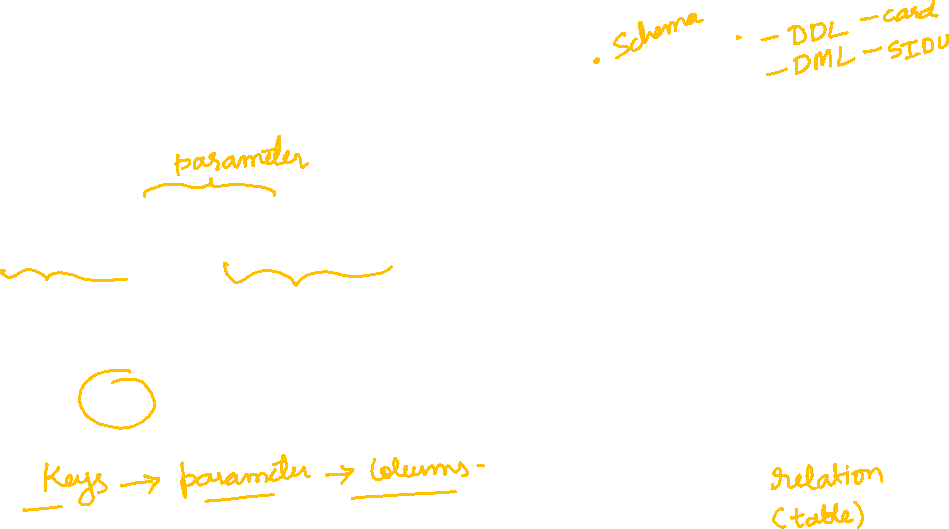 • Schema
• - DDL - card
- DML - SIDU
parameter
Keys → parameter → Columns -
relation
(table)